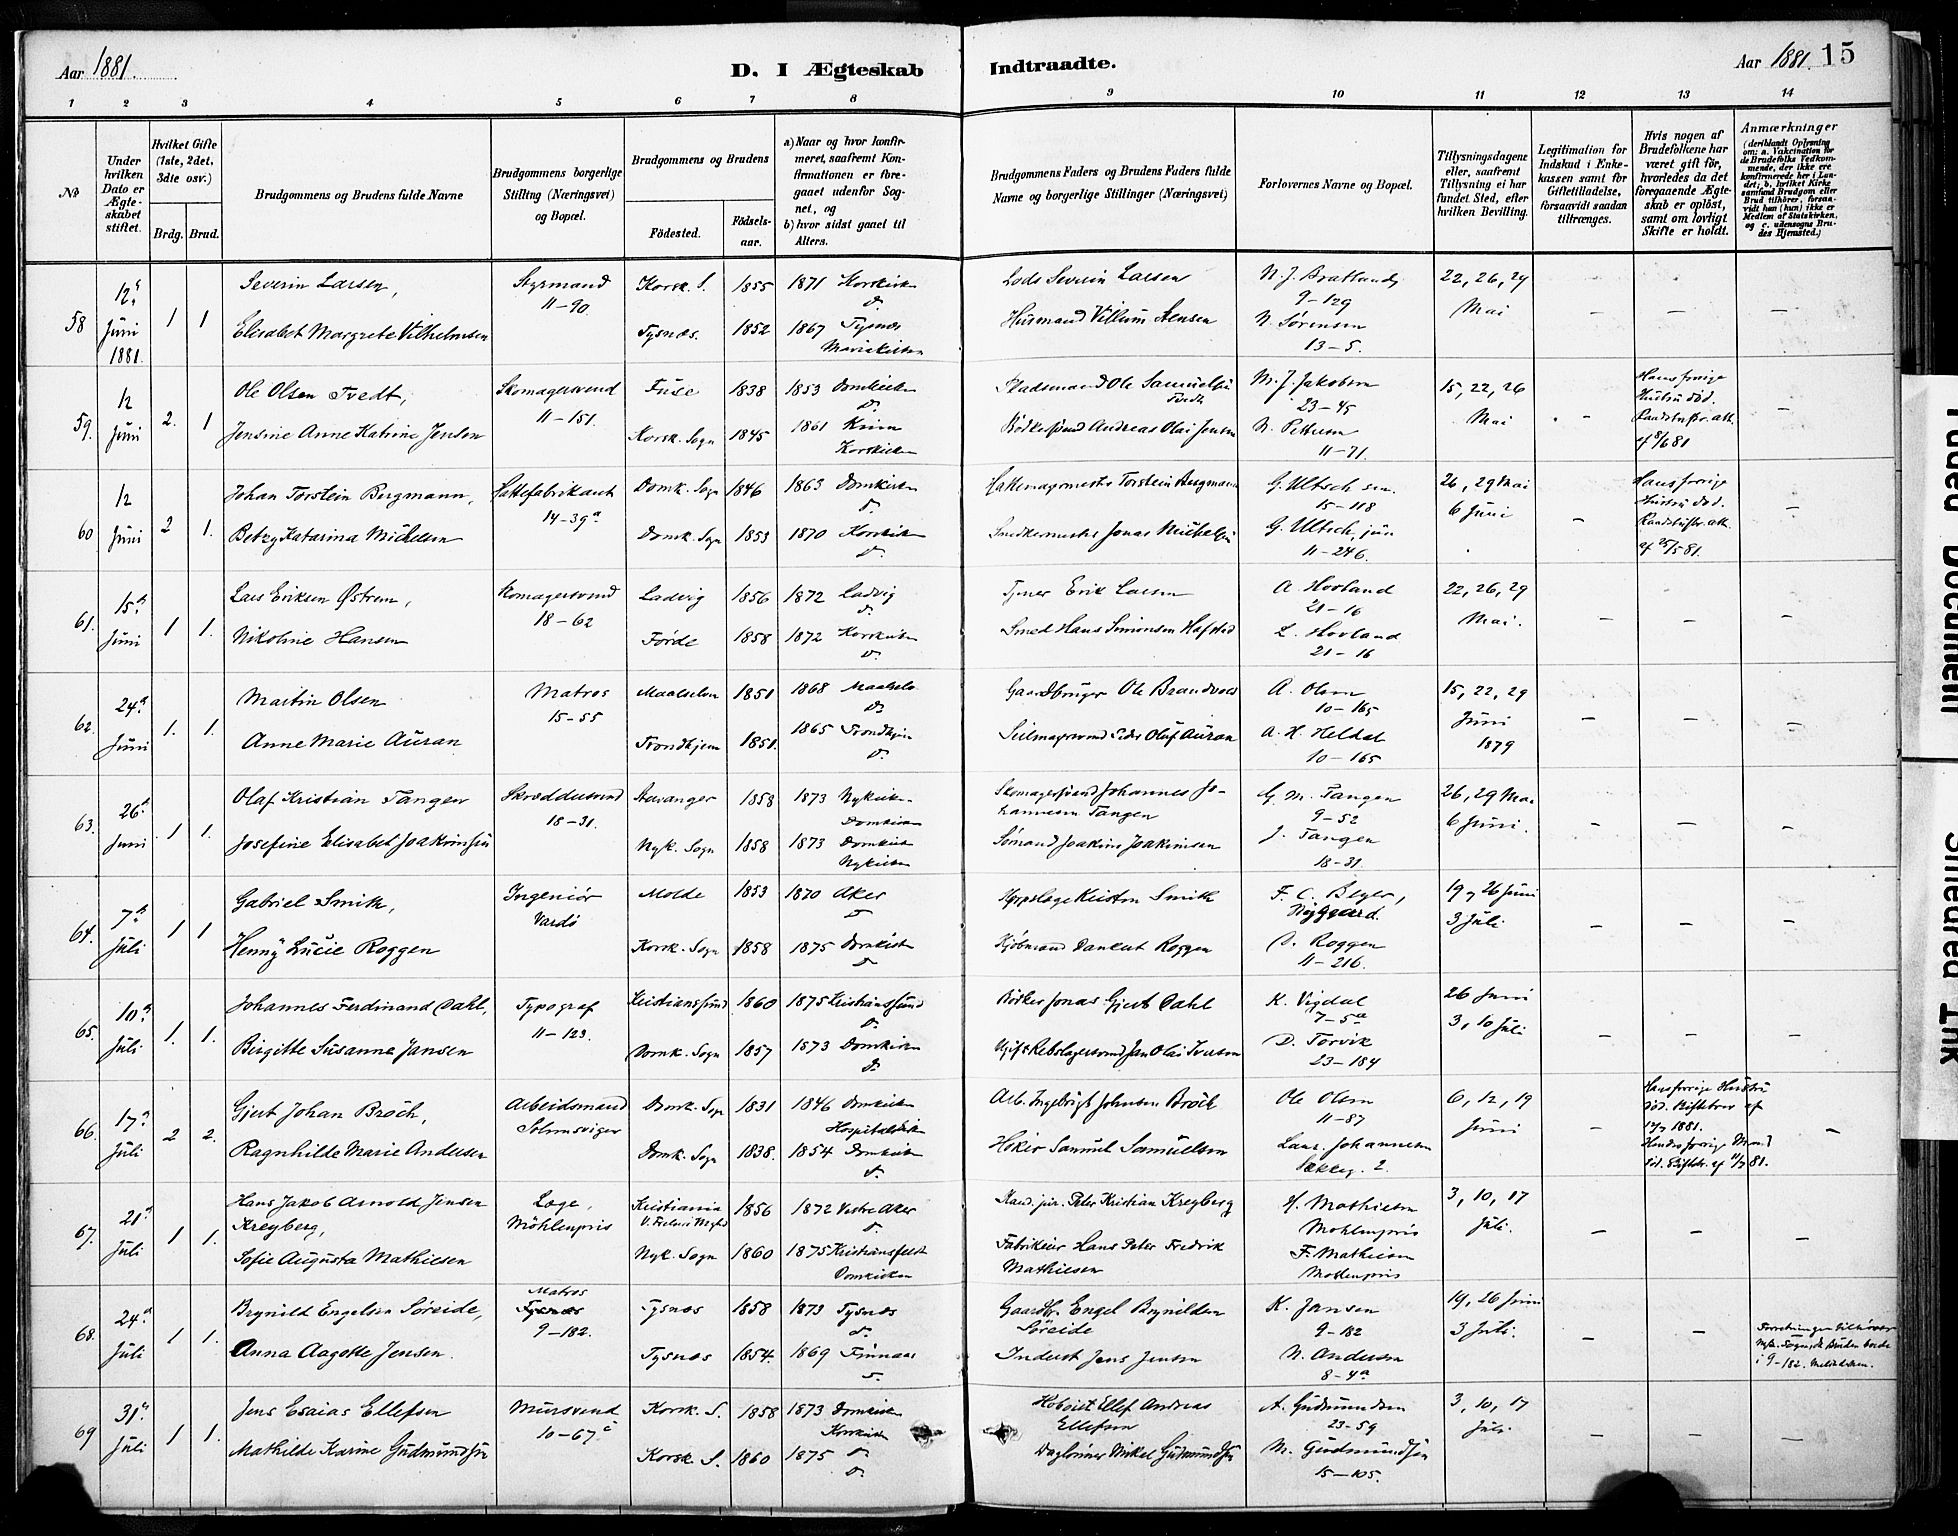 Aar 1881.
D. I Ægteskab Indtraadte.
Aar 1881. 15
1 2 3 4 5 6 7 8 9 10 11 12 13 14
No
Under hvilken Dato er Ægteskabet stiftet.
Hvilket Gifte (1ste, 2det, 3die osv.)
Brdg. Brud.
Brudgommens og Brudens fulde Navne
Brudgommens borgerlige Stilling (Næringsvei) og Bopæl.
Brudgommens og Brudens
Fødested.
Fødselsaar.
a) Naar og hvor konfirmeret, saafremt Konfirmationen er foregaaet udenfor Sognet, og
b) hvor sidst gaaet til Alters.
Brudgommens Faders og Brudens Faders fulde Navne og borgerlige Stillinger (Næringsvei)
Forlovernes Navne og Bopæl.
Tillysningsdagene eller, saafremt Tillysning ei har fundet Sted, efter hvilken Bevilling.
Legitimation for Indskud i Enkekassen samt for Giftetilladelse, forsaavidt saadan tiltrænges.
Hvis nogen af Brudefolkene har været gift før, hvorledes da det foregaaende Ægteskab er opløst, samt om lovligt Skifte er holdt.
Anmærkninger
(deriblandt Oplysning om: a. Vakcination for de Brudefolks Vedkommende, der ikke ere konfirmerede her i Landet; b. hvilket Kirkesamfund Brudgom eller Brud tilhører, forsaavidt han (hun) ikke er Medlem af Statskirken, og c. udensogns Brudes Hjemsted.)
58 12 Juni 1881. 1 1
Severin Larsen, Styrmand 11-90. Korsk. S. 1855 1871 Korskirken Lods Severin Larsen 9-129 22, 26, 29 Mai
Elisabet Margrete Vilhelmsen Tysnæs. 1852 1867 Tysnæs Mariekirken Husmand Villum N. Sørensen 13-5.
59. 12 Juni 2. 1
Ole Olsen Tvedt, Skomagersvend 11-151. Fuse 1838 1853 Domkirken Pladsmand Ole Samuelsen Tvedt M. J. Jakobsen 23-45 15, 22, 26 Mai Hans forrige Hustru død. af 8/6 81
Jensine Anne Katrine Jensen Korsk. Sogn 1845 1861 Korskirken Andreas Olai Jensen N. Pettersen 11-71.
60 12 Juni 2 1.
Johan Torstein Bergmann, Hattefabrikant 14-39a Domk. Sogn 1846 1863 Domkirken Hattemagermester Torstein Bergmann G. Ultsch sen. 15-118 26, 29 Mai 6 Juni Hans forrige Hustru død. af 25/5 81.
Betzy Katarina Michelsen Domk. Sogn 1853 1870 Korskirken Snedkermester Jonas Michelsen G. Ultsch, jun 11-246.
61. 15 Juni 1 1.
Lars Eriksen Østrem, Skomagersvend 18-62 Ladvig 1856 1872 Ladvig Tjener Erik Larsen A Hovland 21-16 22, 26, 29 Mai.
Nikoline Hansen Førde 1858 1872 Korskirken Smed Hans Simonsen Hafstad L. Hovland 21-16
62. 24 Juni 1. 1.
Martin Olsen Matros 15-55 Maalselven 1851 1868 Maalselv Gaardbruger Ole A. Olsen 10-165 15, 22, 29 Juni 1879
Anne Marie Auran Trondhjem 1851. 1865 Trondhjem Seilmagersvend Peder Olaf Auran A. H. Heldal 10-165
63. 26 Juni 1 1.
Olaf Kristian Tangen Skræddersvend 18-31. Stavanger 1858 1873 Nykirken Domkirken Skomagersvend Johannes Johannesen Tangen G. M. Tangen 9-52 26, 29 Mai 6 Juni.
Josefine Elisabet Joakimsen Nyk. Sogn 1858 1873 Domkirken Nykirken Sømand Joakim Joakimsen J. Tangen 18-31.
64. 7 Juli 1 1
Gabriel Smith, Ingeniør Vardø Molde 1853 1870 Aker Smith F. C. Beyer, Nygaard. 19, 26 Juni 3 Juli
Henny Lucie Roggen Korsk. Sogn 1858 1875 Domkirken Kjøbmand Dankert Roggen D. Roggen 11-216.
65. 10 Juli 1. 1.
Johannes Ferdinand Dahl, Typograf 11-123. Kristianssund 1860 1875 Kristianssund Bødker Jonas Gjert Dahl K. Vigdal 7-5a 26 Juni 3, 10 Juli
Birgitte Susanne Jansen Domk. Sogn 1857 1873 Domkirken Ugift Rebslagersvend Jan Olai Iversen D. Torvik 23-184
66. 17 Juli 2 2.
Gjert Johan Broch, Arbeidsmand Solheimsviken Domk. Sogn 1831 1846 Domkirken Hospitalskirken Arb. Ingebrigt Johnsen Broch Ole Olsen 11-87 6, 12, 19 Juni Hans forrige Hustru død. Skiftebrev af 1881.
Ragnhilde Marie Andersen Domk. Sogn 1838. 1854 Domkirken Høker Samuel Samuelsen Laur. Johannesen 2. Hendes forrige Mand død. Skiftebr. af 11/7 81.
67. 21 Juli 1 1.
Hans Jakob Arnold Jensen Kreyberg, Læge, Møhlenpris Kristiania 1856 1872 Vestre Aker Kand. jur. Peter Kristian Kreyberg H. Mathiesen Møhlenpris 3, 10, 17 Juli.
Sofie Augusta Mathiesen Nyk. Sogn 1860 1875 Domkirken Fabrikeier Hans Peter Fredrik Mathiesen F. Mathiesen Møhlenpris
68. 24 Juli 1 1.
Brynild Engelsen Søreide, Matros Tysnæs 9-182. Tysnæs 1858 1873 Tysnæs Gaardbr. Engel Brynildsen Søreide K. Jansen 9-182 19, 26 Juni 3 Juli.
Anna Aagotte Jensen. Tysnæs 1854. 1869 Finnaas Inderst Jens Jensen N. Andersen 8-4a i 9-182.
69 31 Juli 1 1.
Jens Esaias Ellefsen Mursvend 10-67c Korsk. S. 1858 1873 Domkirken Korskirken Hoboist Ellef Andreas Ellefsen A. Gudmundsen 23-59 3, 10, 17 Juli.
Mathilde Karine Gudmundsen Korsk. S. 1860 1875 Dagleiner Mikel Gudmundsen M. Gudmundsen 15-105.
Faded Document
Smeared Ink